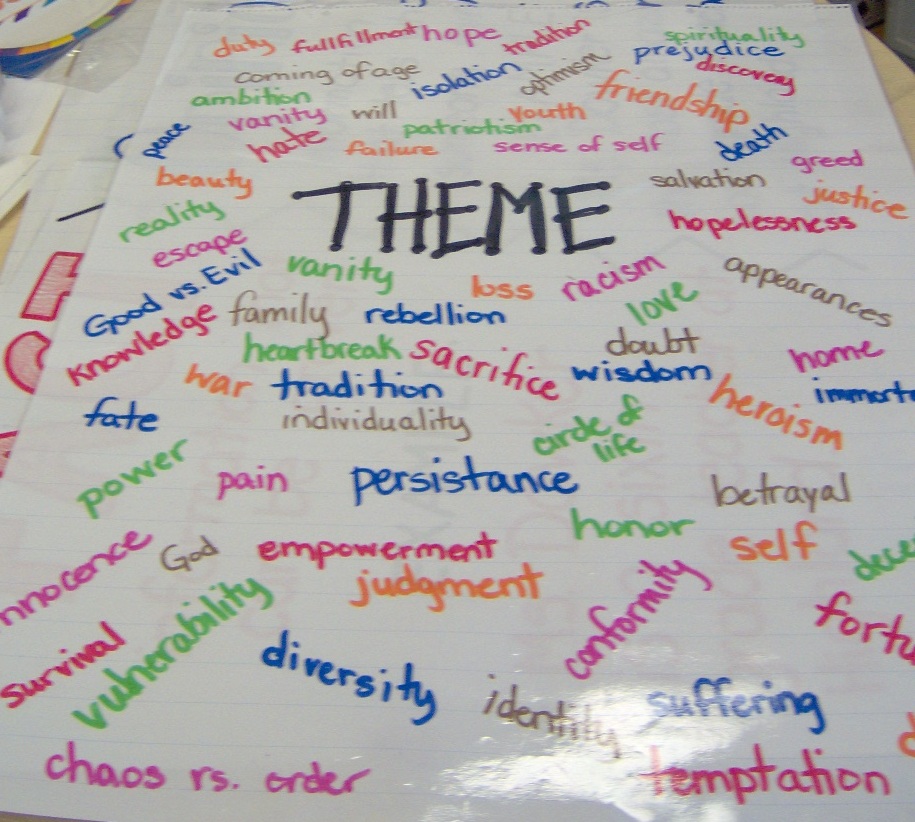 duty fullfillment hope tradition spirituality
prejudice
coming of age isolation optimism discovery
ambition friendship
vanity will youth
peace hate patriotism death
failure sense of self greed
beauty salvation justice
THEME
reality hopelessness
escape
Good vs. Evil vanity loss racism appearances
love
Knowledge family rebellion
heartbreak sacrifice doubt home
war tradition wisdom heroism immort
fate individuality circle of
life
power pain persistance betrayal
honor
nnocence God empowerment self dece
judgment conformity fortu
survival vulnerability
diversity identity suffering
chaos rs. order temptation